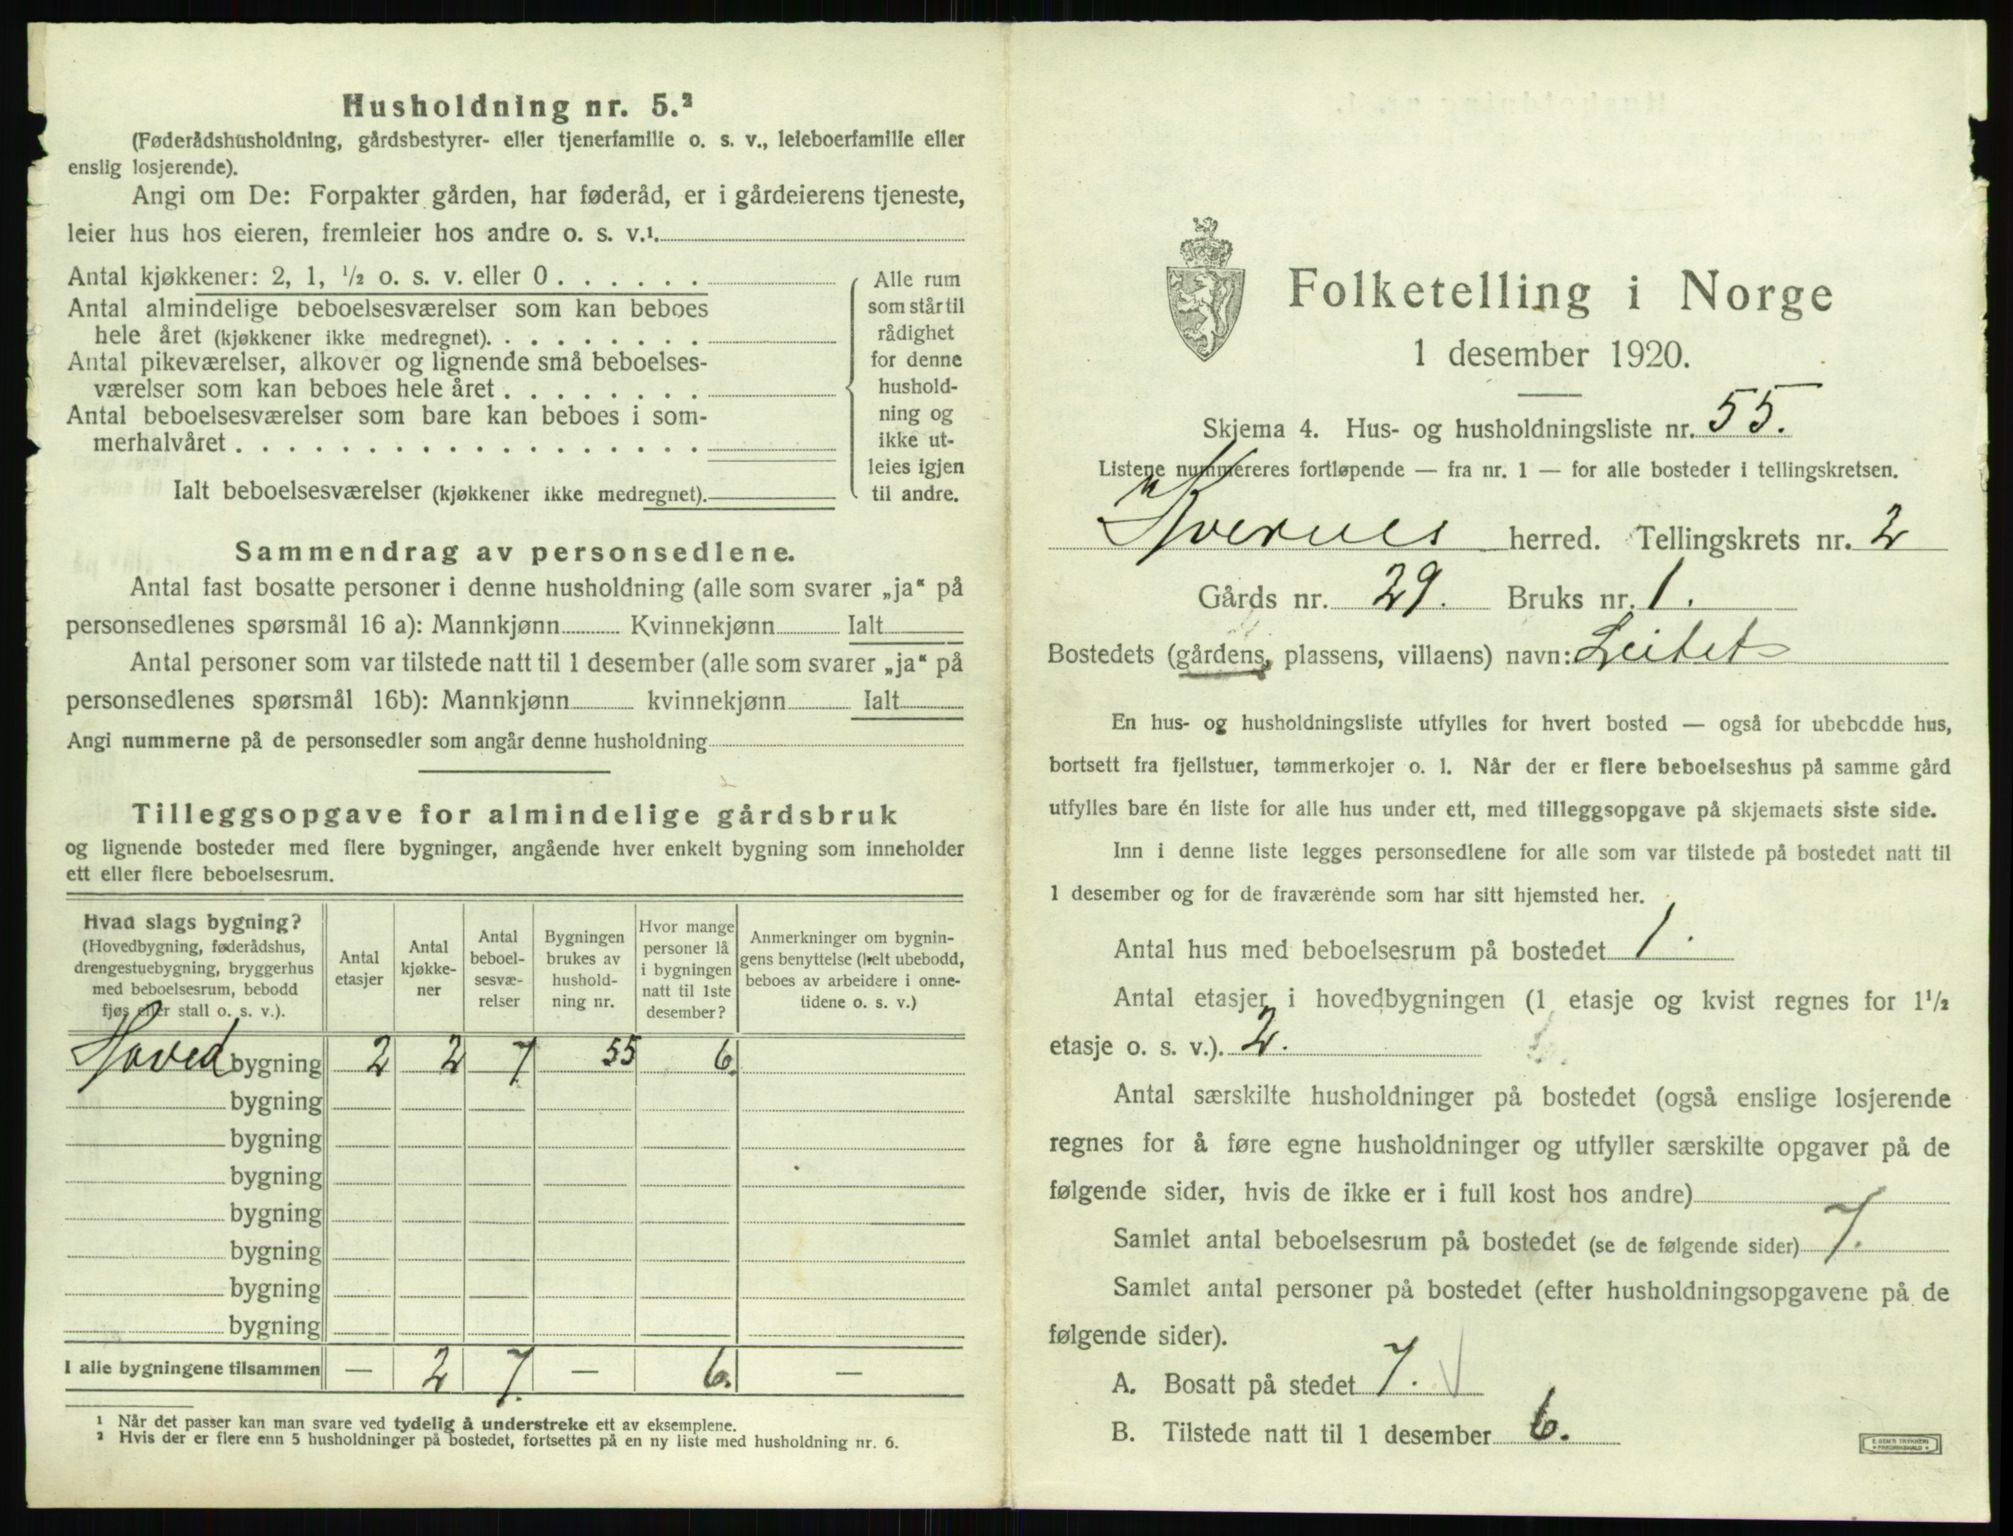 Husholdning nr. 5.²
(Føderådshusholdning, gårdsbestyrer- eller tjenerfamilie o. s. v., leieboerfamilie eller
enslig losjerende).
Angi om De: Forpakter gården, har føderåd, er i gårdeierens tjeneste,
leier hus hos eieren, fremleier hos andre o. s. v.¹.
Antal kjøkkener: 2, 1, ½ o. s. v. eller 0 . . . . . .
Antal almindelige beboelsesværelser som kan beboes
hele året (kjøkkener ikke medregnet). . . . . . . . .
Antal pikeværelser, alkover og lignende små beboelses-
værelser som kan beboes hele året . . . . . . . .
Antal beboelsesværelser som bare kan beboes i som-
merhalvåret . . . . . . . . . . . . . . . . . .
Ialt beboelsesværelser (kjøkkener ikke medregnet).
Alle rum
som står til
rådighet
for denne
hushold-
ning og
ikke ut-
leies igjen
til andre.
Sammendrag av personsedlene.
Antal fast bosatte personer i denne husholdning (alle som svarer „ja“ på
personsedlenes spørsmål 16 a): Mannkjønn Kvinnekjønn Ialt
Antal personer som var tilstede natt til 1 desember (alle som svarer „ja“ på
personsedlenes spørsmål 16b): Mannkjønn kvinnekjønn Ialt
Angi nummerne på de personsedler som angår denne husholdning
Tilleggsopgave for almindelige gårdsbruk
og lignende bosteder med flere bygninger, angående hver enkelt bygning som inneholder
ett eller flere beboelsesrum.
Hvad slags bygning?
(Hovedbygning, føderådshus,
drengestuebygning, bryggerhus
med beboelsesrum, bebodd
fjøs eller stall o. s. v.).
Antal
etasjer
Antal
kjøkke-
ner
Antal
beboel-
sesvæ-
relser
Bygningen
brukes av
hushold-
ning nr.
Hvor mange
personer lå
i bygningen
natt til 1ste
desember?
Anmerkninger om bygnin-
gens benyttelse (helt ubebodd,
beboes av arbeidere i onne-
tidene o. s. v.)
Hoved bygning 2 2 7 55 6.
bygning
bygning
bygning
bygning
bygning
bygning
bygning
I alle bygningene tilsammen — 2 7. — 6. —
¹ Når det passer kan man svare ved tydelig å understreke ett av eksemplene.
² Hvis der er flere enn 5 husholdninger på bostedet, fortsettes på en ny liste med husholdning nr. 6.
Folketelling i Norge
1 desember 1920.
Skjema 4. Hus- og husholdningsliste nr. 55.
Listene nummereres fortløpende — fra nr. 1 — for alle bosteder i tellingskretsen.
Kvernes herred. Tellingskrets nr. 2
Gårds nr. 29. Bruks nr. 1.
Bostedets (gårdens, plassens, villaens) navn: Leitet
En hus- og husholdningsliste utfylles for hvert bosted — også for ubebodde hus,
bortsett fra fjellstuer, tømmerkojer o. l. Når der er flere beboelseshus på samme gård
utfylles bare én liste for alle hus under ett, med tilleggsopgave på skjemaets siste side.
Inn i denne liste legges personsedlene for alle som var tilstede på bostedet natt til
1 desember og for de fraværende som har sitt hjemsted her.
Antal hus med beboelsesrum på bostedet 1.
Antal etasjer i hovedbygningen (1 etasje og kvist regnes for 1½
etasje o. s. v.). 2.
Antal særskilte husholdninger på bostedet (også enslige losjerende
regnes for å føre egne husholdninger og utfyller særskilte opgaver på de
følgende sider, hvis de ikke er i full kost hos andre)
Samlet antal beboelsesrum på bostedet (se de følgende sider) 7.
Samlet antal personer på bostedet (efter husholdningsopgavene på de
følgende sider).
A. Bosatt på stedet 7.
B. Tilstede natt til 1 desember 6.